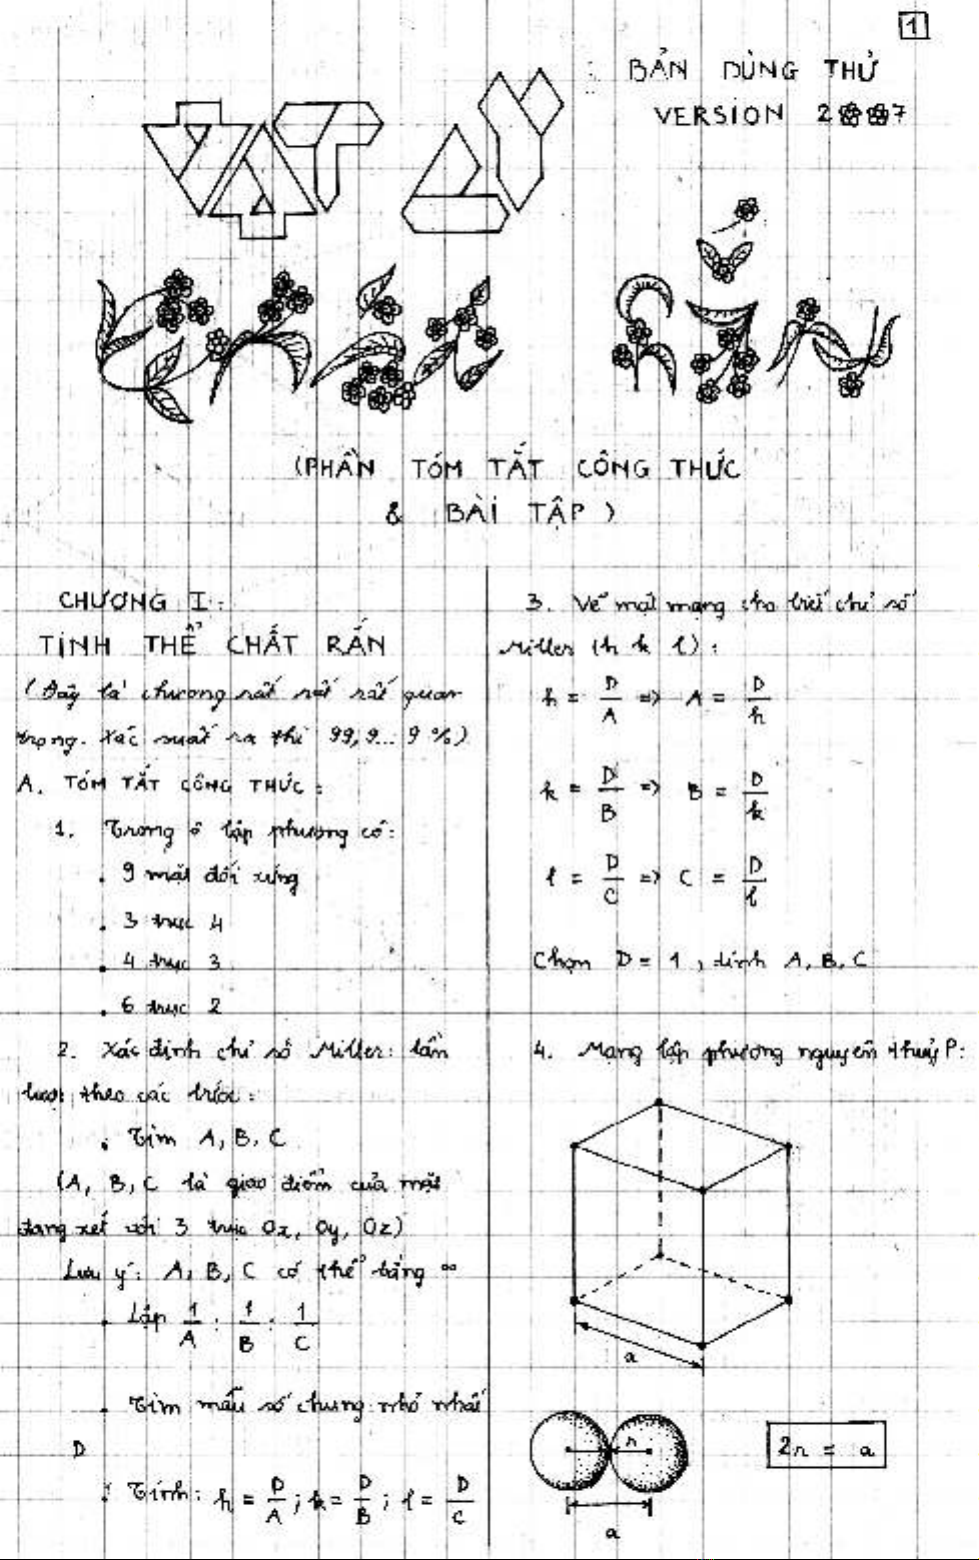 1
BẢN DÙNG THỬ
VERSION 2007
VẬT LÝ
CHẤT RẮN
(PHẦN TÓM TẮT CÔNG THỨC
& BÀI TẬP)
CHƯƠNG I:
TINH THỂ CHẤT RẮN
(Đây là chương rất rất rất quan
trọng. Xác suất ra thi 99,9...9%)
A. TÓM TẮT CÔNG THỨC:
1. Trong ô lập phương có:
. 9 mặt đối xứng
. 3 trục 4
. 4 trục 3
. 6 trục 2
2. Xác định chỉ số Miller: lần
lượt theo các bước:
. Tìm A, B, C
(A, B, C là giao điểm của mặt
đang xét với 3 trục Ox, Oy, Oz)
Lưu ý: A, B, C có thể bằng ∞
. Lập 1/A : 1/B : 1/C
. Tìm mẫu số chung nhỏ nhất
D
. Tính: h = D/A ; k = D/B ; l = D/C
3. Vẽ mặt mạng cho biết chỉ số
Miller (h k l):
h = D/A => A = D/h
k = D/B => B = D/k
l = D/C => C = D/l
Chọn D = 1, tính A, B, C
4. Mạng lập phương nguyên thuỷ P:
a
r
a
2r = a